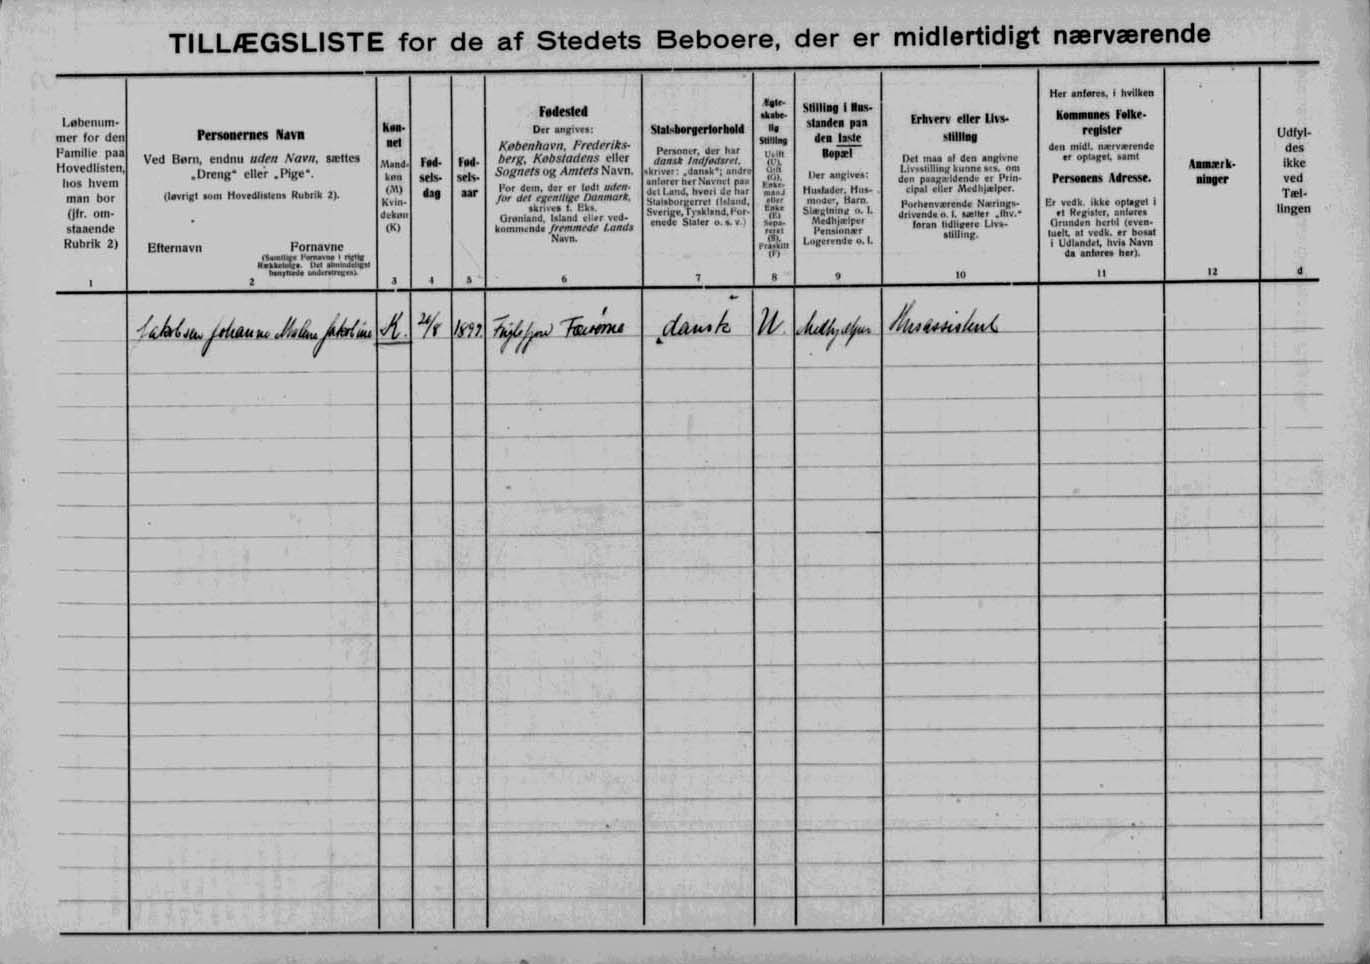 TILLÆGSLISTE for de af Stedets Beboere, der er midlertidigt nærværende
Løbenum-
mer for den
Familie paa
Hovedlisten,
hos hvem
man bor
(jfr. om-
staaende
Rubrik 2)
1
Personernes Navn
Ved Børn, endnu uden Navn, sættes
„Dreng“ eller „Pige“.
(Iøvrigt som Hovedlistens Rubrik 2).
Efternavn Fornavne
(Samtlige Fornavne i rigtig
Rækkefølge. Det almindeligst
benyttede understreges).
2
Køn-
net
Mand-
køn
(M)
Kvin-
dekøn
(K)
3
Fød-
sels-
dag
4
Fød-
sels-
aar
5
Fødested
Der angives:
København, Frederiks-
berg, Købstadens eller
Sognets og Amtets Navn.
For dem, der er født uden-
for det egentlige Danmark,
skrives f. Eks.
Grønland, Island eller ved-
kommende fremmede Lands
Navn.
6
Statsborgerforhold
Personer, der har
dansk Indfødsret,
skriver: „dansk“; andre
anfører her Navnet paa
det Land, hvori de har
Statsborgerret (Island,
Sverige, Tyskland, For-
enede Stater o. s. v.)
7
Ægte-
skabe-
lig
Stilling
Ugift
(U),
Gift
(G),
Enke-
mand
eller
Enke
(E)
Sepa-
reret
(S),
Fraskilt
(F)
8
Stilling i Hus-
standen paa
den faste
Bopæl
Der angives:
Husfader, Hus-
moder, Barn,
Slægtning o. l.
Medhjælper
Pensionær
Logerende o. l.
9
Erhverv eller Livs-
stilling
Det maa af den angivne
Livsstilling kunne ses, om
den paagældende er Prin-
cipal eller Medhjælper.
Forhenværende Nærings-
drivende o. l. sætter „fhv.“
foran tidligere Livs-
stilling.
10
Her anføres, i hvilken
Kommunes Folke-
register
den midl. nærværende
er optaget, samt
Personens Adresse.
Er vedk. ikke optaget i
et Register, anføres
Grunden hertil (even-
tuelt, at vedk. er bosat
i Udlandet, hvis Navn
da anføres her).
11
Anmærk-
ninger
12
Udfyl-
des
ikke
ved
Tæl-
lingen
d
Jakobsen Johanne Malene Jakobine K. 26/8 1897. Fuglefjord Færøerne dansk U. Medhjælper Husassistent